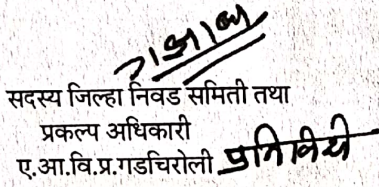 सदस्य जिल्हा निवड समिती तथा
प्रकल्प अधिकारी
ए.आ.वि.प्र.गडचिरोली प्रतिनिधी